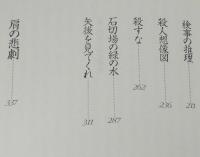 検事の推理 211
殺人想像図 236
殺すな 262
石切場の緑の水 287
矢後を見てくれ 311
屑の悲劇 337